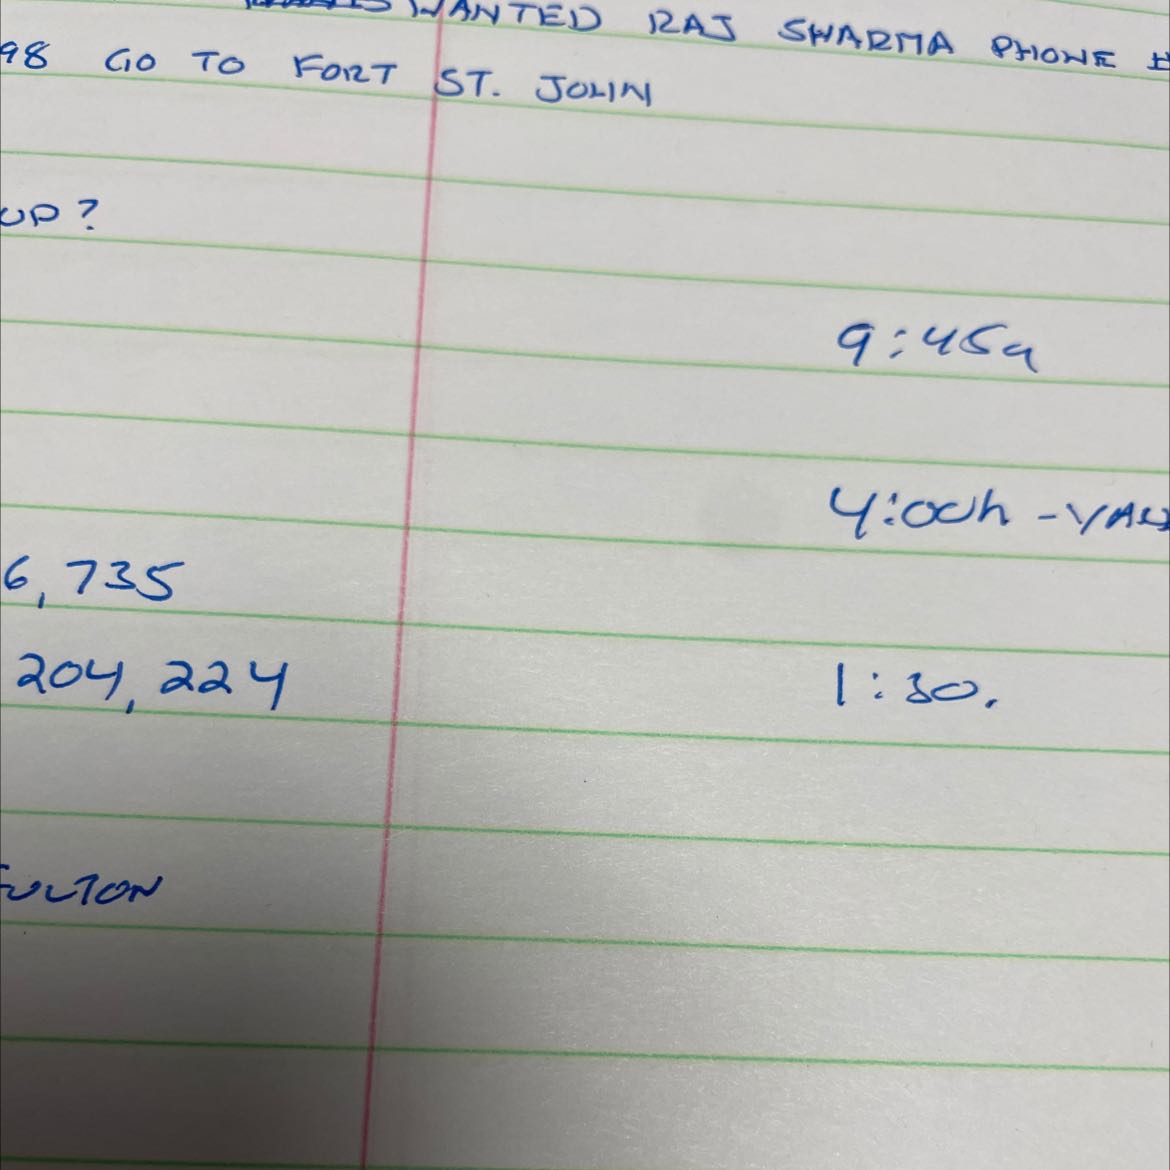 WANTED RAJ SHARMA PHONE #
98 GO TO FORT ST. JOHN
UP?
9:45a
4:00h -
6,735
204,224
1:30.
FULTON